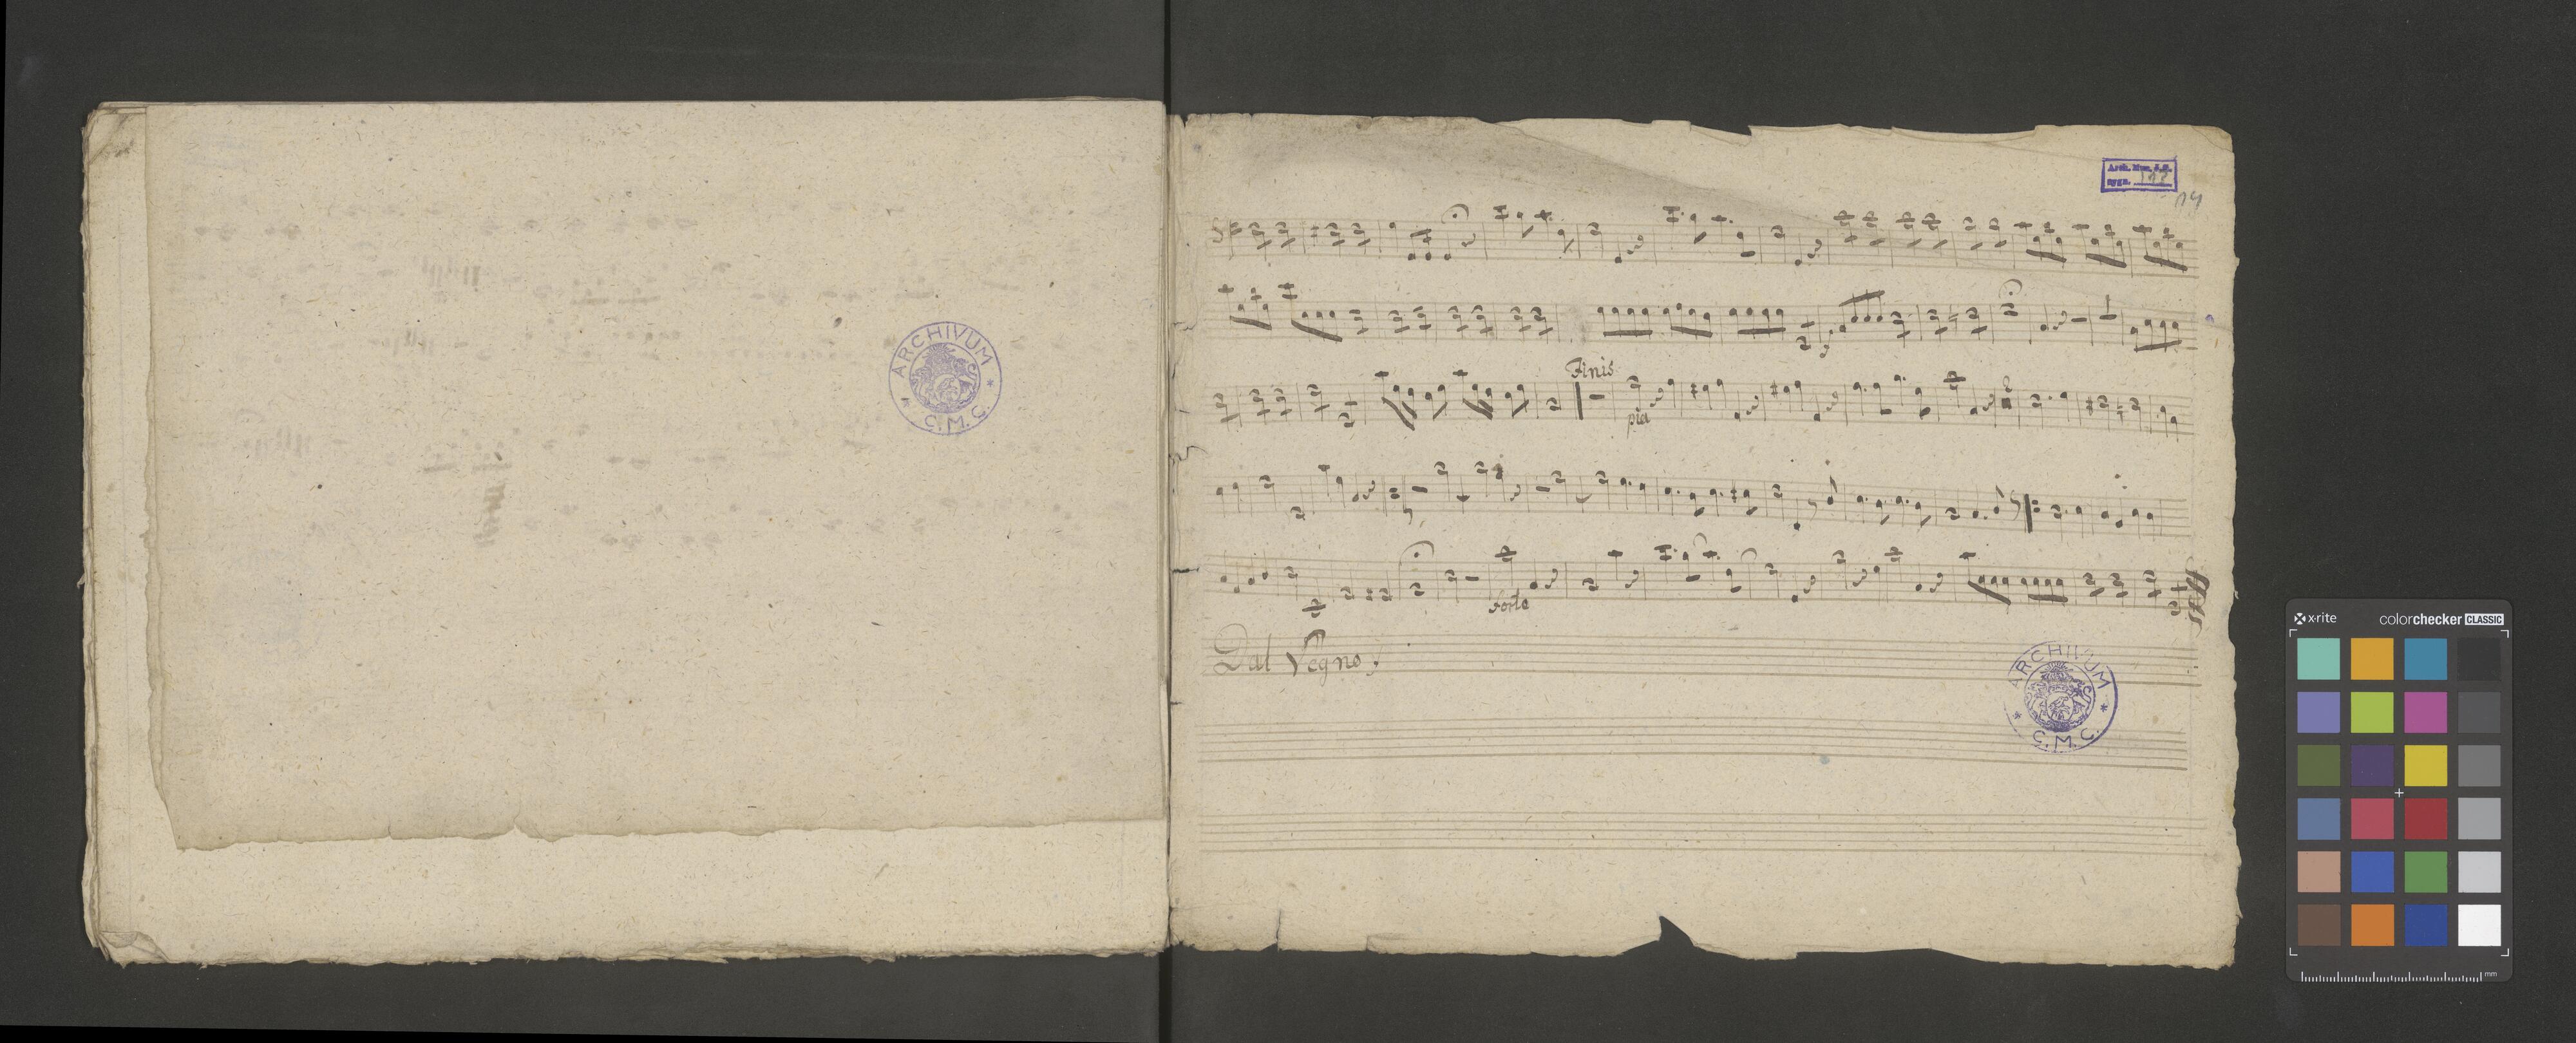 ARCHIVUM
* C.M.C. *
Arch. Mus. J.G.
sygn.
Finis
pia
forte
Dal Segno
ARCHIVUM
* C.M.C. *
x·rite colorchecker CLASSIC
mm